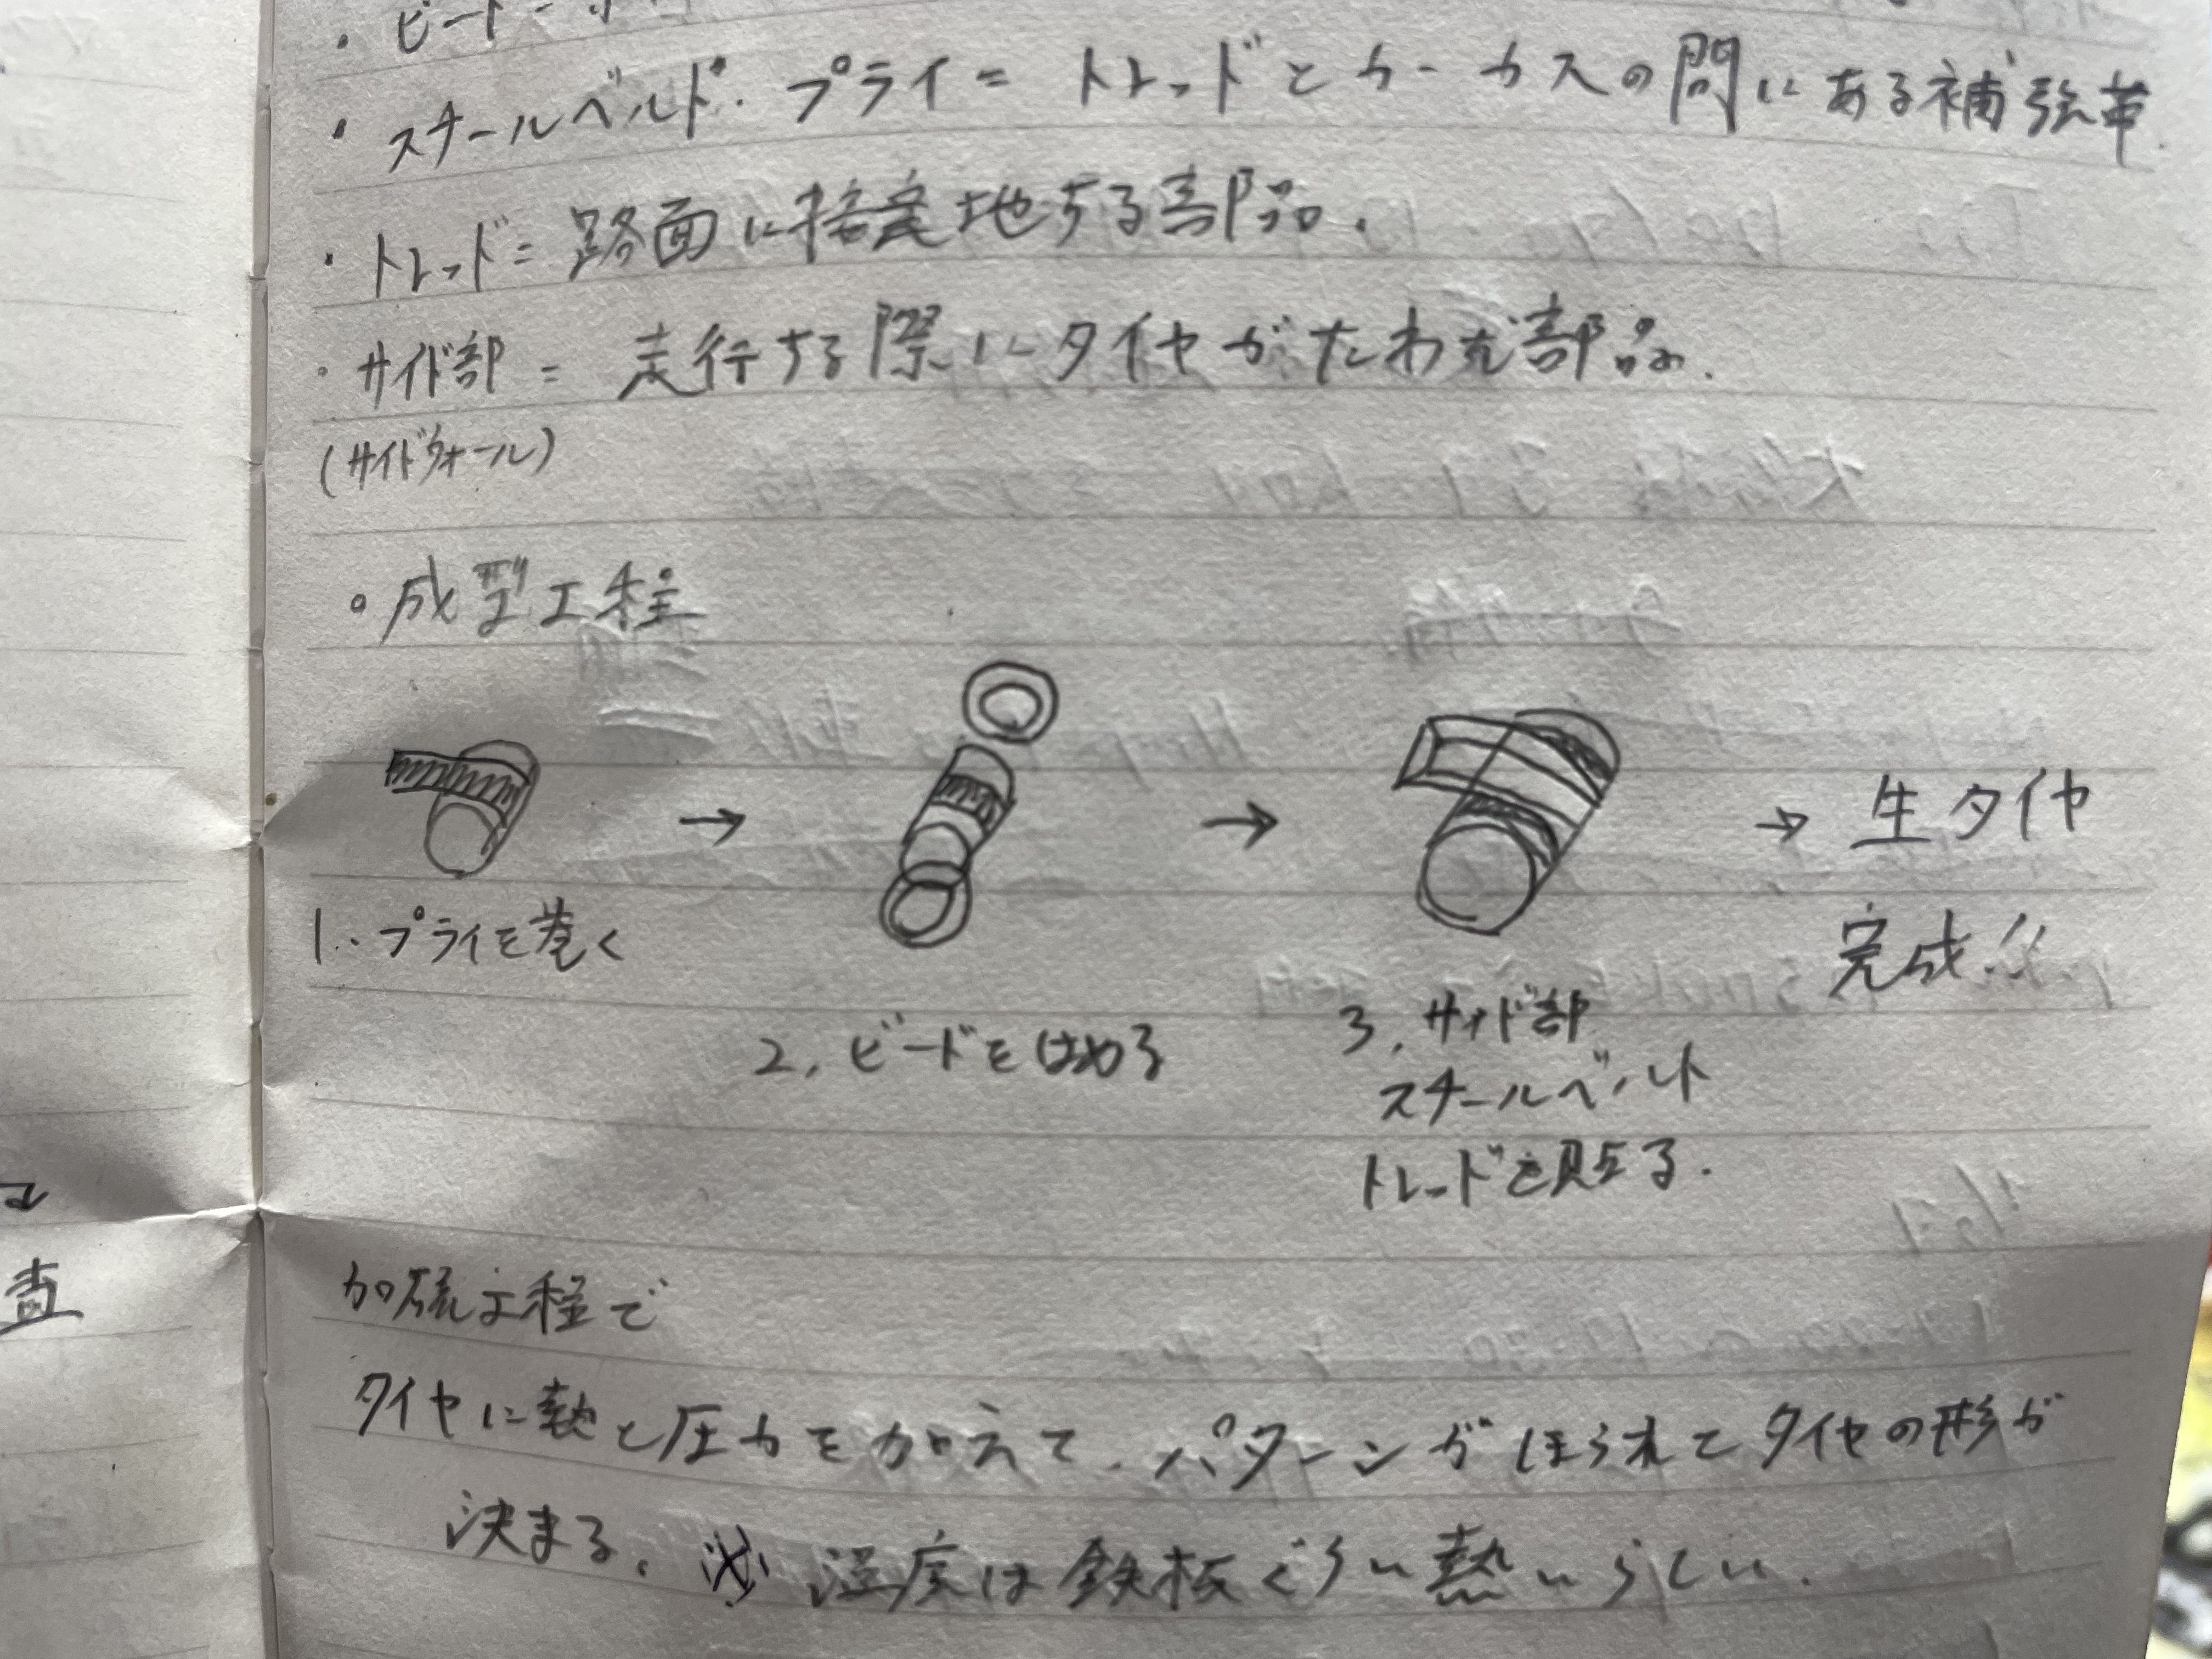 ・ビード=
・スチールベルト・プライ=トレッドとカーカスの間にある補強革.
・トレッド=路面に接地する部品.
・サイド部=走行する際にタイヤがたわむ部品.
(サイドウォール)
○成型工程
→ → → 生タイヤ
完成!!
1.プライを巻く
2.ビードをはめる
3.サイド部
スチールベルト
トレッドを貼る.
査
加硫工程で
タイヤに熱と圧力を加えて.パターンがほられてタイヤの形が
決まる. ※温度は鉄板ぐらい熱いらしい.